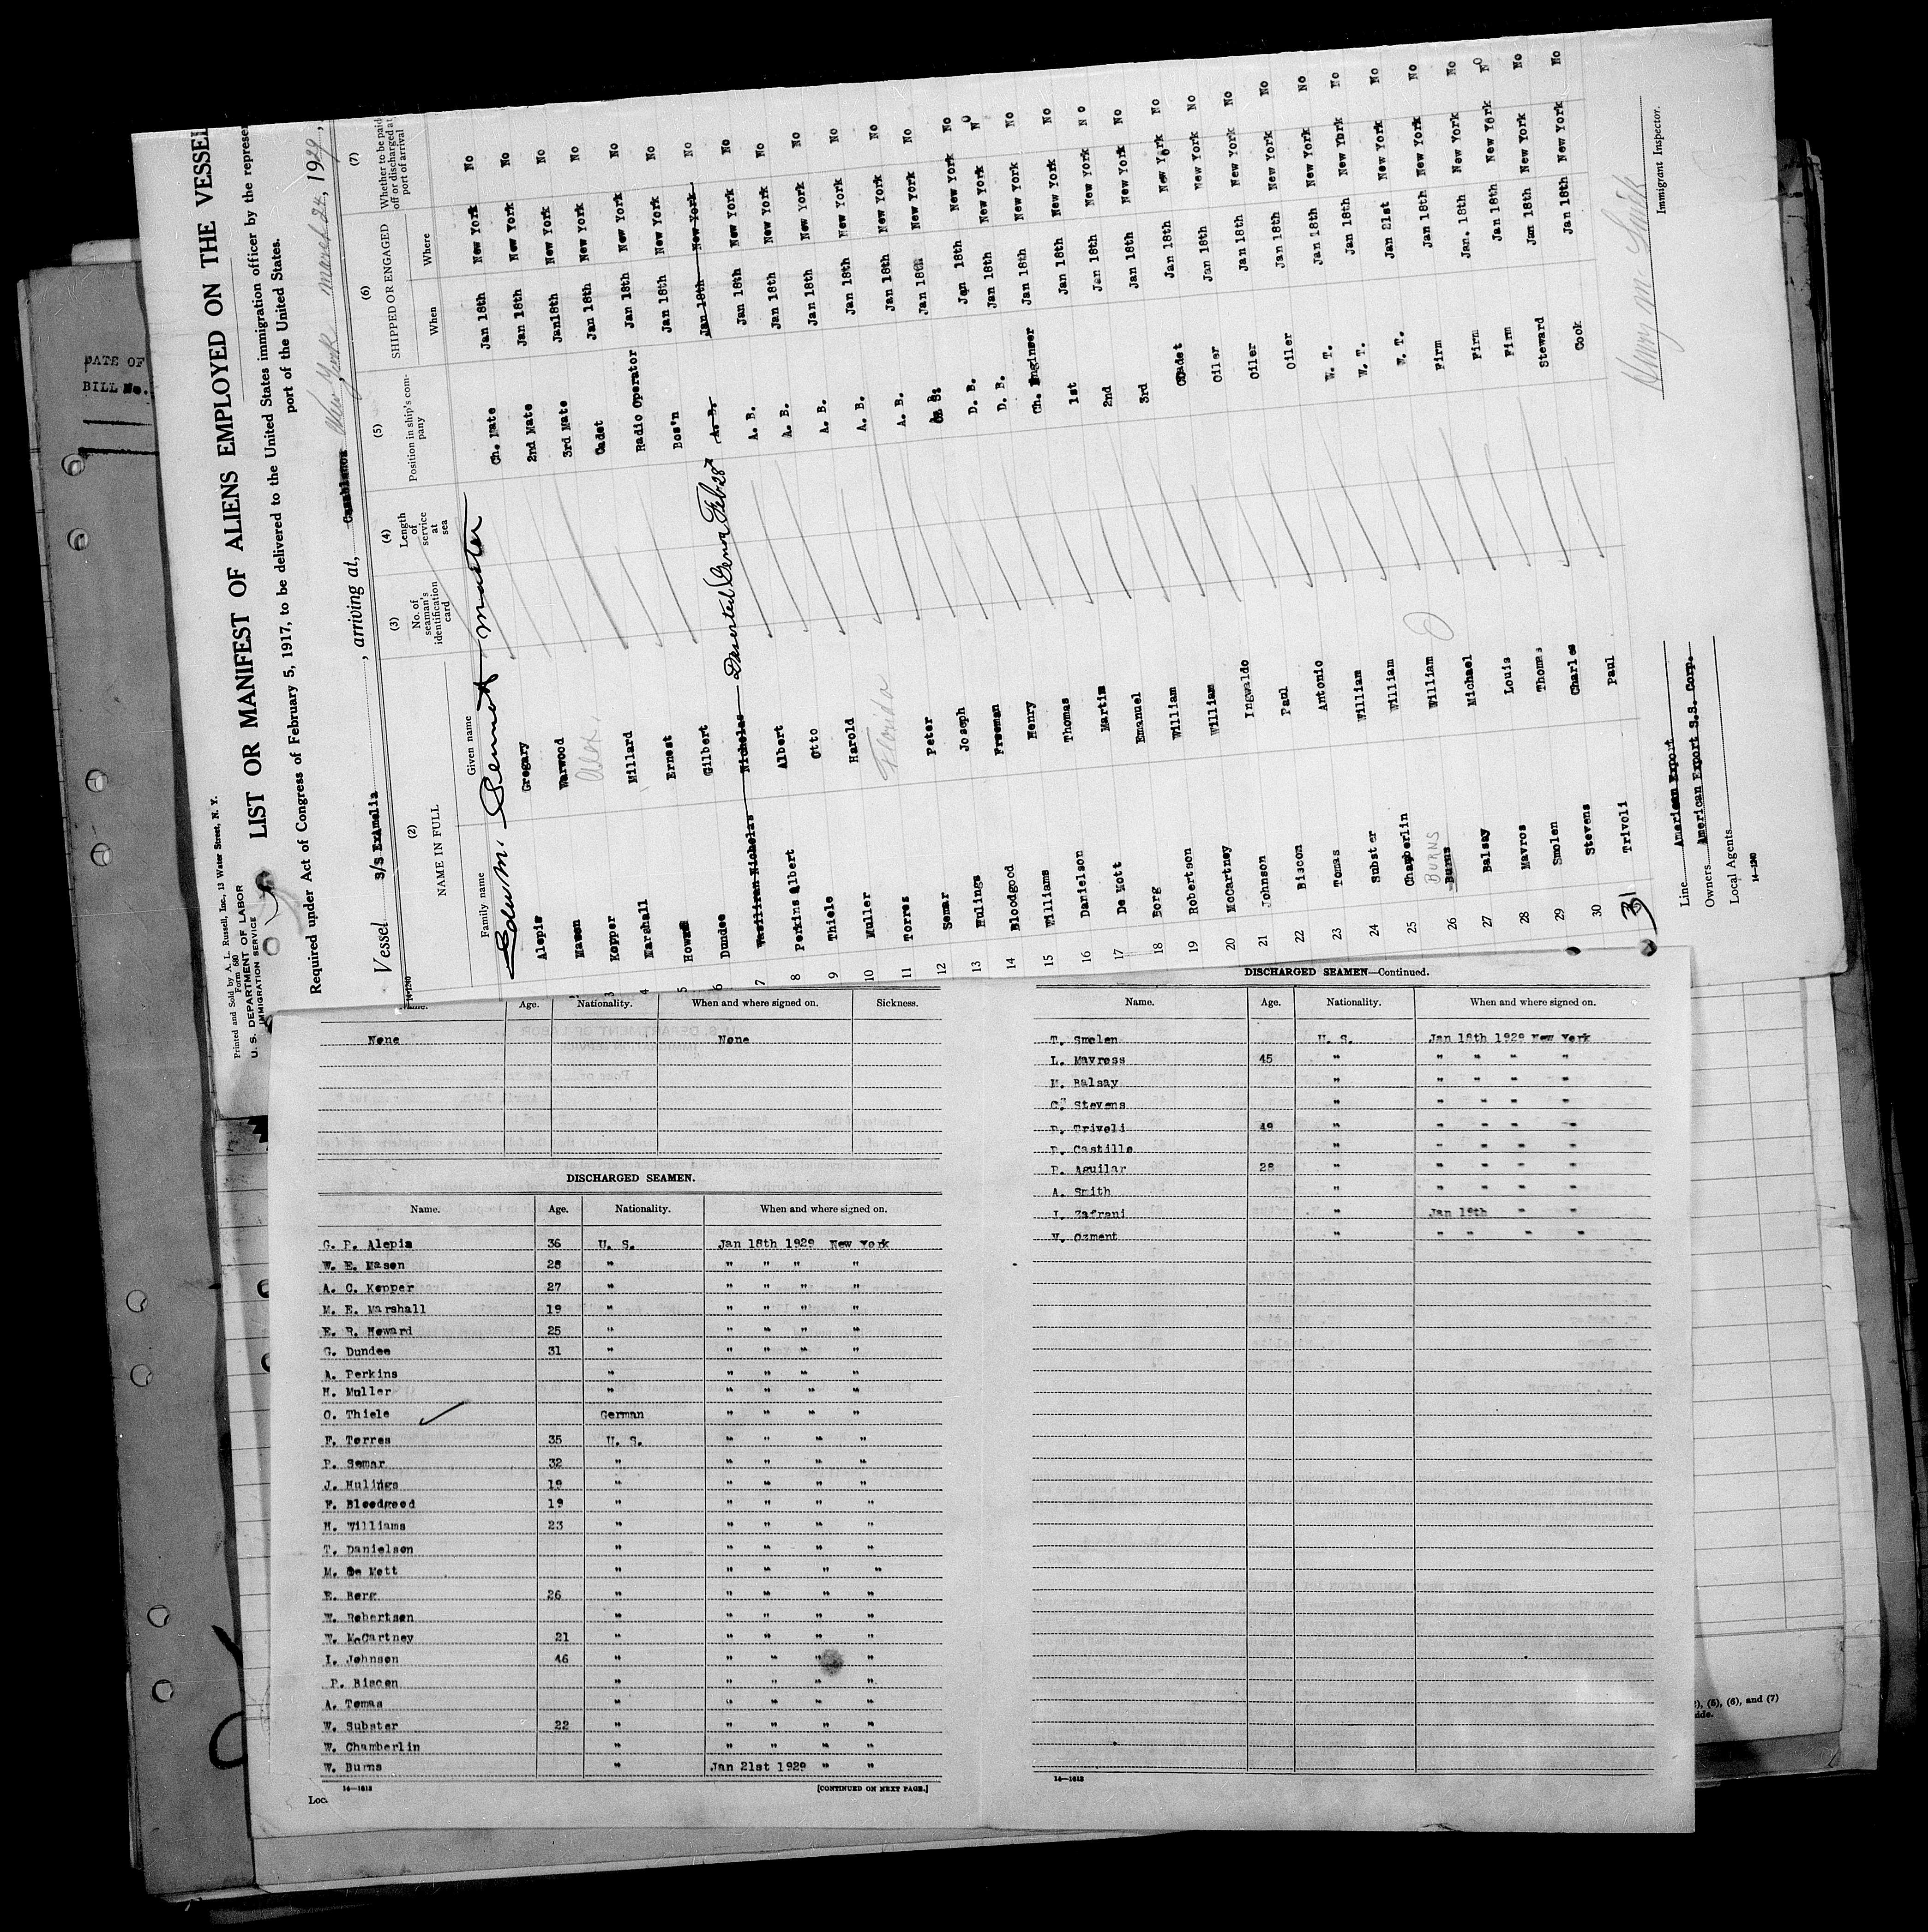 Printed and Sold by A. L. Russell, Inc., 13 Water Street, N. Y.
Form 680
U. S. DEPARTMENT OF LABOR
IMMIGRATION SERVICE
LIST OR MANIFEST OF ALIENS EMPLOYED ON THE VESSEL
Required under Act of Congress of February 5, 1917, to be delivered to the United States immigration officer by the represen
port of the United States.
Vessel S/S ExAmelia , arriving at, Casablanca New York March 24, 1929,
14-1240
(2) (3) (4) (5) (6) (7)
NAME IN FULL
Family name Given name
No. of seaman's identification card
Length of service at sea
Position in ship's company
SHIPPED OR ENGAGED
When Where
Whether to be paid off or discharged at port of arrival
Edw M. Master
Alepis Gregary Ch. Mate Jan 18th New York No
Mason Warwood 2nd Mate Jan 18th New York No
3 Kepper Alex. 3rd Mate Jan18th New York No
4 Marshall Millard Cadet Jan 18th New York No
5 Howard Ernest Radio Operator Jan 18th New York No
6 Dundee Gilbert Bos'n Jan 18th New York No
7 Vasiliran Nicholas Nicholas Deserted Genoa Feb 28 A. B. Jan 18th New York No
8 Perkins Albert Albert A. B. Jan 18th New York No
9 Thiele Otto A. B. Jan 18th New York No
10 Muller Harold A. B. Jan 18th New York No
11 Torres Florida A. B. Jan 18th New York No
12 Semar Peter A. B. Jan 18th New York No
13 Hulings Joseph Jan 18th New York No
14 Bloodgood Freeman D. B. Jan 18th New York No
15 Williams Henry D. B. Jan 18th New York No
16 Danielson Thomas Ch. Engineer Jan 18th New York No
17 De Mott Martin 1st Jan 18th New York No
18 Borg Emanuel 2nd Jan 18th New York No
19 Robertson William 3rd Jan 18th New York No
20 McCartney William Cadet Jan 18th New York No
21 Johnson Ingwaldo Oiler Jan 18th New York No
22 Biscon Paul Oiler Jan 18th New York No
23 Tomas Antonio Oiler Jan 18th New York No
24 Subster William W. T. Jan 18th New York No
25 Chamberlin William W. T. Jan 18th New York No
26 BURNS Burns William W. T. Jan 21st New York No
27 Balsay Michael Firm Jan 18th New York No
28 Mavros Louis Firm Jan. 18th New York No
29 Smolen Thomas Firm Jan 18th New York No
30 Stevens Charles Steward Jan 18th New York No
31 Trivoli Paul Cook Jan 18th New York No
Line American Export
Owners American Export S.S. Corp.
Local Agents
14-1240
Immigrant Inspector.
DATE OF
BILL No.
Name. Age. Nationality. When and where signed on. Sickness.
None None
DISCHARGED SEAMEN.
Name. Age. Nationality. When and where signed on.
G. P. Alepis 36 U. S. Jan 18th 1929 New York
W. E. Mason 28 " " " " "
A. C. Kepper 27 " " " " "
M. E. Marshall 19 " " " " "
E. R. Howard 25 " " " " "
G. Dundee 31 " " " " "
A. Perkins " " " " "
H. Muller " " " " "
O. Thiele German " " " "
F. Torres 35 U. S. " " " "
P. Semar 32 " " " " "
J. Hulings 19 " " " " "
F. Bloodgood 19 " " " " "
H. Williams 23 " " " " "
T. Danielson " " " " "
M. De Mott " " " " "
E. Borg 26 " " " " "
W. Robertson " " " " "
W. McCartney 21 " " " " "
I. Johnson 46 " " " " "
P. Biscon " " " " "
A. Tomas " " " " "
W. Subster 22 " " " " "
W. Chamberlin " " " " "
W. Burns " Jan 21st 1929 " "
14—1613 [CONTINUED ON NEXT PAGE.]
Loc
DISCHARGED SEAMEN—Continued.
Name. Age. Nationality. When and where signed on.
T. Smolen U. S. Jan 18th 1929 New York
L. Mavross 45 " " " " "
M. Balsay " " " " "
C. Stevens " " " " "
P. Triveli 49 " " " " "
P. Castillo " " " " "
P. Aguilar 28 " " " " "
A. Smith " " " " "
I. Zafrani " Jan 19th " "
V. Ozment " " " " "
14—1613
), (5), (6), and (7)
side.